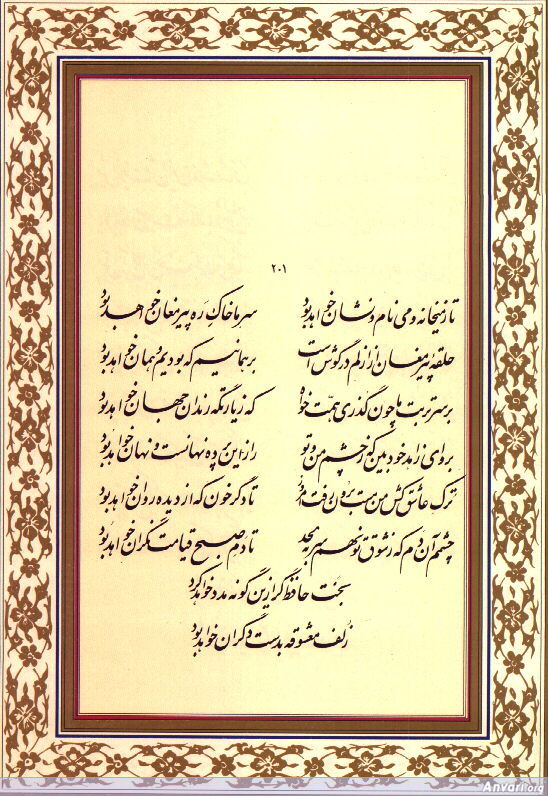 ۲۰۱
تا ز میخانه و می نام و نشان خواهد بود سر ما خاک ره پیر مغان خواهد بود
حلقه پیر مغان از ازلم در گوش است بر همانیم که بودیم و همان خواهد بود
بر سر تربت ما چون گذری همت خواه که زیارتگه رندان جهان خواهد بود
برو ای زاهد خودبین که ز چشم من و تو راز این پرده نهانست و نهان خواهد بود
ترک عاشق کش من مست برون رفت امروز تا دگر خون که از دیده روان خواهد بود
چشمم آن دم که ز شوق تو نهم سر به لحد تا دم صبح قیامت نگران خواهد بود
بخت حافظ گر ازین گونه مدد خواهد کرد
زلف معشوقه بدست دگران خواهد بود
Anvari.org